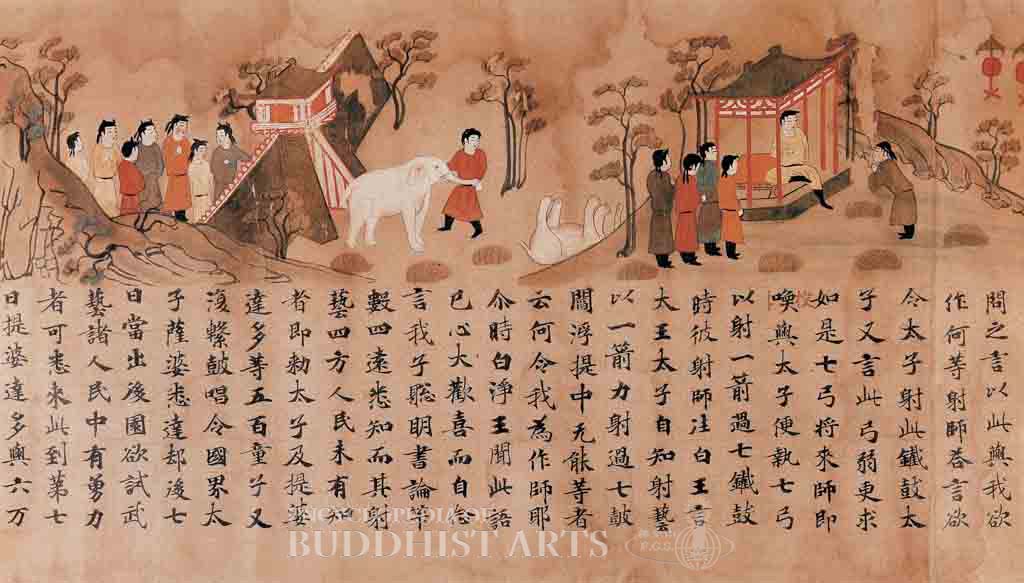 問之言以此與我欲
作何等射師荅言欲
令太子射此鐵鼓太
子又言此弓弱更求
如是七弓将来師即
喚與太子便執七弓
以射一箭過七鐵鼓
時彼射師往白王言
大王太子自知射藝
以一箭力射過七皷
閻浮提中无能等者
云何令我為作師耶
尒時白淨王聞此語
已心大歡喜而自念
言我子聡明書論筭
數四遠悉知而其射
藝四方人民未有知
者即勅太子及提婆
達多等五百童子又
復擊皷唱令國界太
子薩婆悉達却後七
日當出後園欲試武
藝諸人民中有勇力
者可悉来此到第七
日提婆達多與六万
ENCYCLOPEDIA OF
BUDDHIST ARTS
F.G.S.